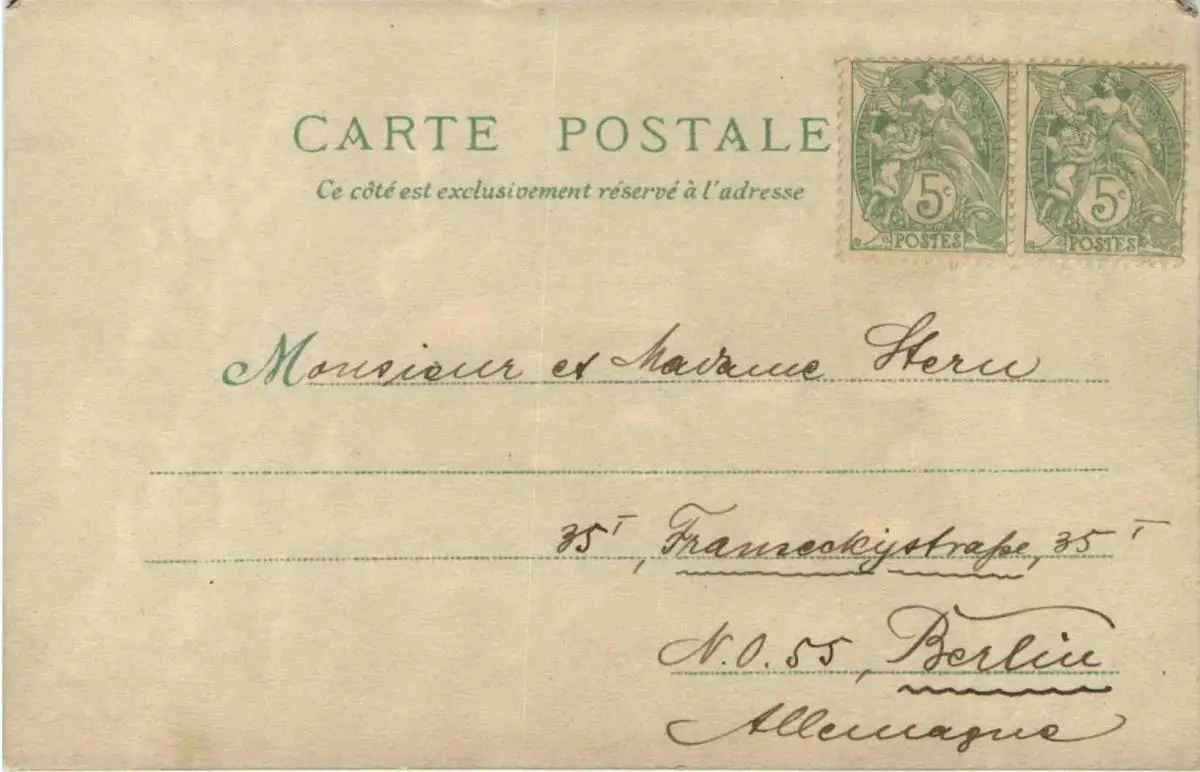 CARTE POSTALE
Ce côté est exclusivement réservé à l'adresse
5c
POSTES
5c
POSTES
Monsieur et Madame Stern
35 I, Franseckystraße, 35 I
N.O. 55, Berlin
Allemagne